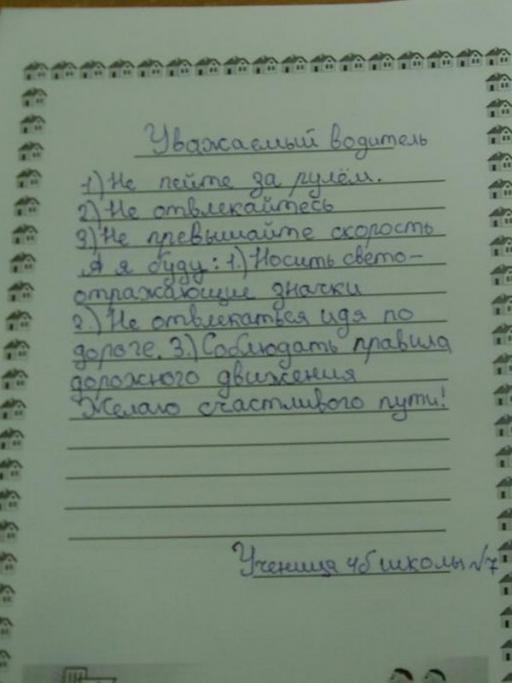 Уважаемый водитель
1) Не пейте за рулём.
2) Не отвлекайтесь
3) Не превышайте скорость
А я буду: 1.) Носить свето-
отражающие значки
2.) Не отвлекаться идя по
дороге. 3.) Соблюдать правила
дорожного движения
Желаю счастливого пути!
Ученица 4б школы №7